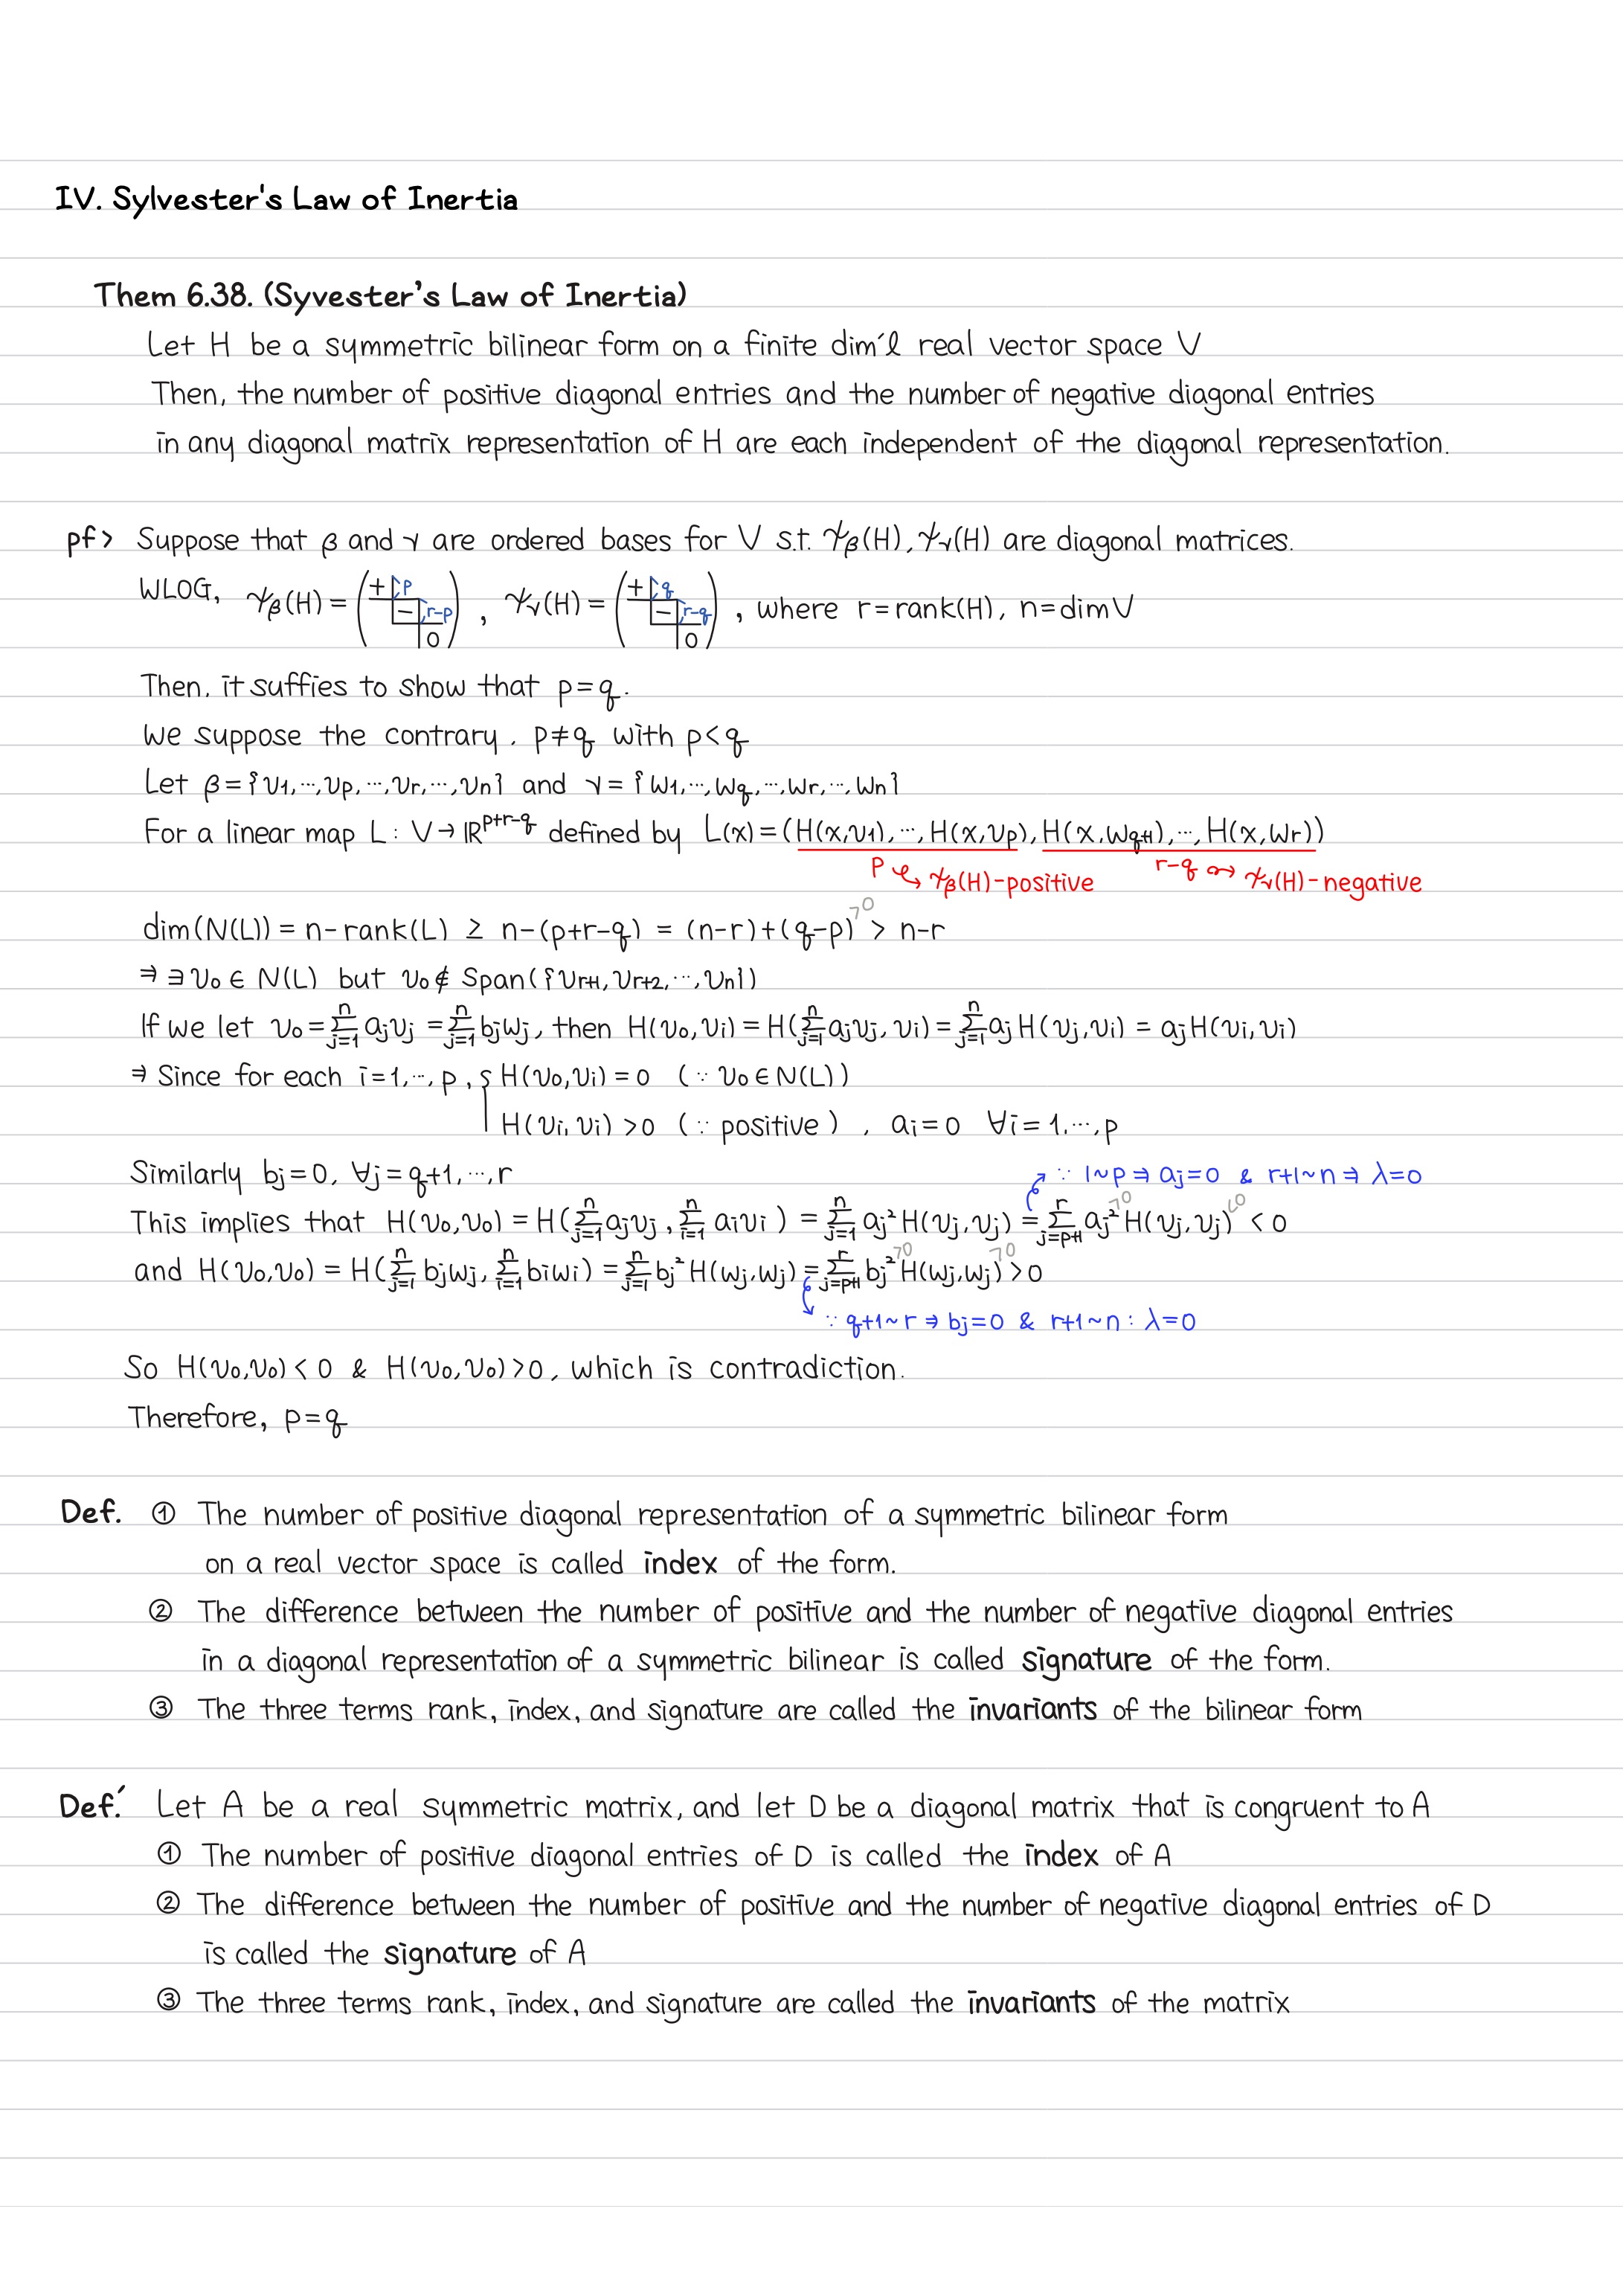 IV. Sylvester's Law of Inertia
Them 6.38. (Syvester's Law of Inertia)
Let H be a symmetric bilinear form on a finite dim'l real vector space V
Then, the number of positive diagonal entries and the number of negative diagonal entries
in any diagonal matrix representation of H are each independent of the diagonal representation.
pf> Suppose that β and γ are ordered bases for V s.t. ψβ(H), ψγ(H) are diagonal matrices.
WLOG, ψβ(H) = (+ p - r-p 0), ψγ(H) = (+ q - r-q 0), where r=rank(H), n=dimV
Then, it suffies to show that p=q.
We suppose the contrary, p≠q with p<q
Let β={v1,…,vp,…,vr,…,vn} and γ={w1,…,wq,…,wr,…,wn}
For a linear map L : V→ℝ^(p+r-q) defined by L(x)=(H(x,v1),…,H(x,vp),H(x,wq+1),…,H(x,wr))
p ↪ ψβ(H)-positive r-q ↪ ψγ(H)-negative
dim(N(L)) = n-rank(L) ≥ n-(p+r-q) = (n-r)+(q-p)^{>0} > n-r
⇒ ∃v0 ∈ N(L) but v0 ∉ Span({vr+1, vr+2, …, vn})
If we let v0 = Σ_{j=1}^n ajvj = Σ_{j=1}^n bjwj, then H(v0,vi) = H(Σ_{j=1}^n ajvj, vi) = Σ_{j=1}^n aj H(vj,vi) = ajH(vi,vi)
⇒ Since for each i=1,…,p, { H(v0,vi)=0 (∵ v0∈N(L))
H(vi,vi)>0 (∵ positive), ai=0 ∀i=1,…,p
Similarly bj=0, ∀j=q+1,…,r
∵ 1~p ⇒ aj=0 & r+1~n ⇒ λ=0
This implies that H(v0,v0) = H(Σ_{j=1}^n ajvj, Σ_{i=1}^n aivi) = Σ_{j=1}^n aj² H(vj,vj) = Σ_{j=p+1}^r aj²^{>0} H(vj,vj)^{<0} < 0
and H(v0,v0) = H(Σ_{j=1}^n bjwj, Σ_{i=1}^n biwi) = Σ_{j=1}^n bj² H(wj,wj) = Σ_{j=p+1}^r bj²^{>0} H(wj,wj)^{>0} > 0
∵ q+1~r ⇒ bj=0 & r+1~n : λ=0
So H(v0,v0)<0 & H(v0,v0)>0, which is contradiction.
Therefore, p=q
Def. ① The number of positive diagonal representation of a symmetric bilinear form
on a real vector space is called index of the form.
② The difference between the number of positive and the number of negative diagonal entries
in a diagonal representation of a symmetric bilinear is called signature of the form.
③ The three terms rank, index, and signature are called the invariants of the bilinear form
Def.' Let A be a real symmetric matrix, and let D be a diagonal matrix that is congruent to A
① The number of positive diagonal entries of D is called the index of A
② The difference between the number of positive and the number of negative diagonal entries of D
is called the signature of A
③ The three terms rank, index, and signature are called the invariants of the matrix